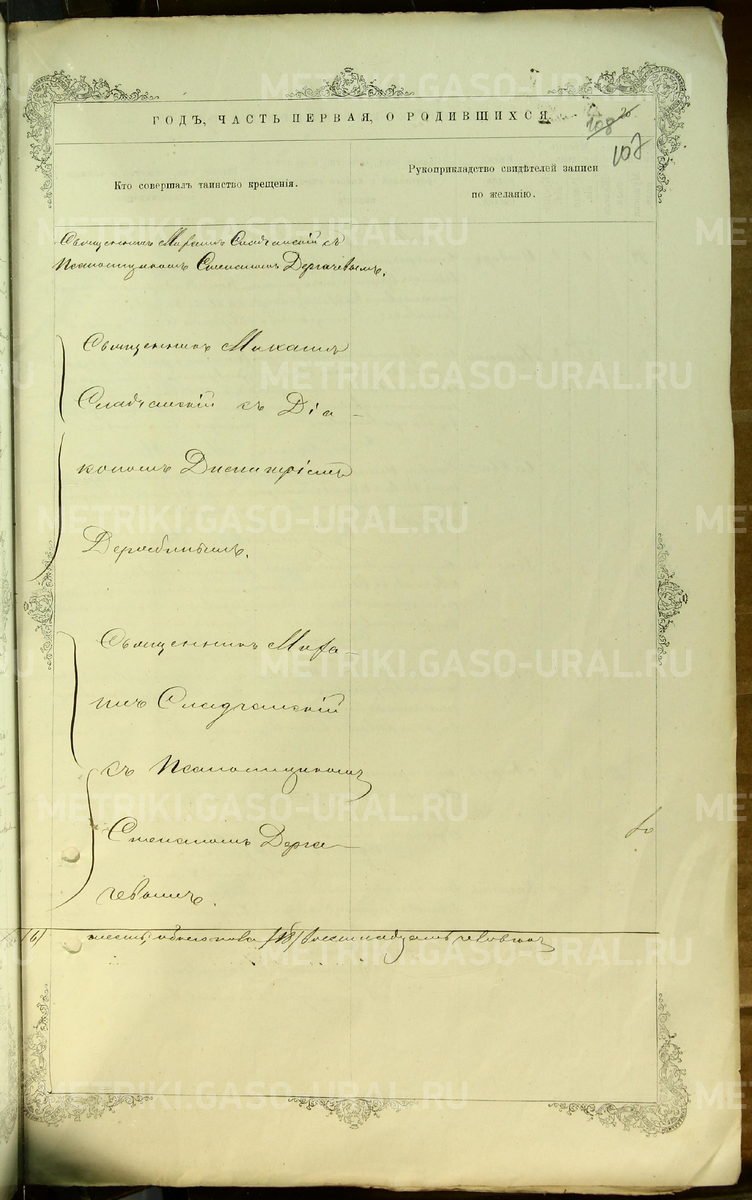 ГОДЪ, ЧАСТЬ ПЕРВАЯ, О РОДИВШИХСЯ
107
Кто совершалъ таинство крещенія.
Рукоприкладство свидѣтелей записи
по желанію.
Священникъ Сладчанскій съ
Псаломщикомъ Степаномъ Дергачевымъ.
Священникъ Михаилъ
Сладчанскій съ Діа-
кономъ Димитріемъ
Священникъ Миха-
илъ Сладчанскій
съ Псаломщикомъ
Степаномъ Дерга-
чевымъ.
обоего пола (18) восемнадцать человѣкъ
METRIKI.GASO-URAL.RU